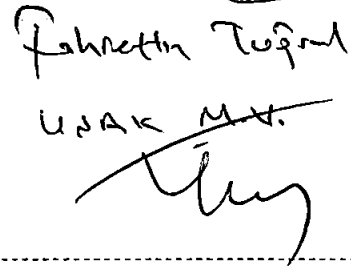 Fahrettin Tuğrul
UŞAK M.V.